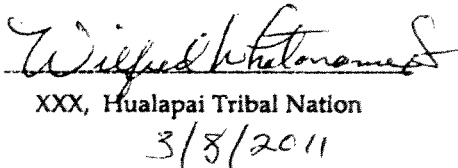 Wilfred Whatoname Sr
XXX, Hualapai Tribal Nation
3/8/2011